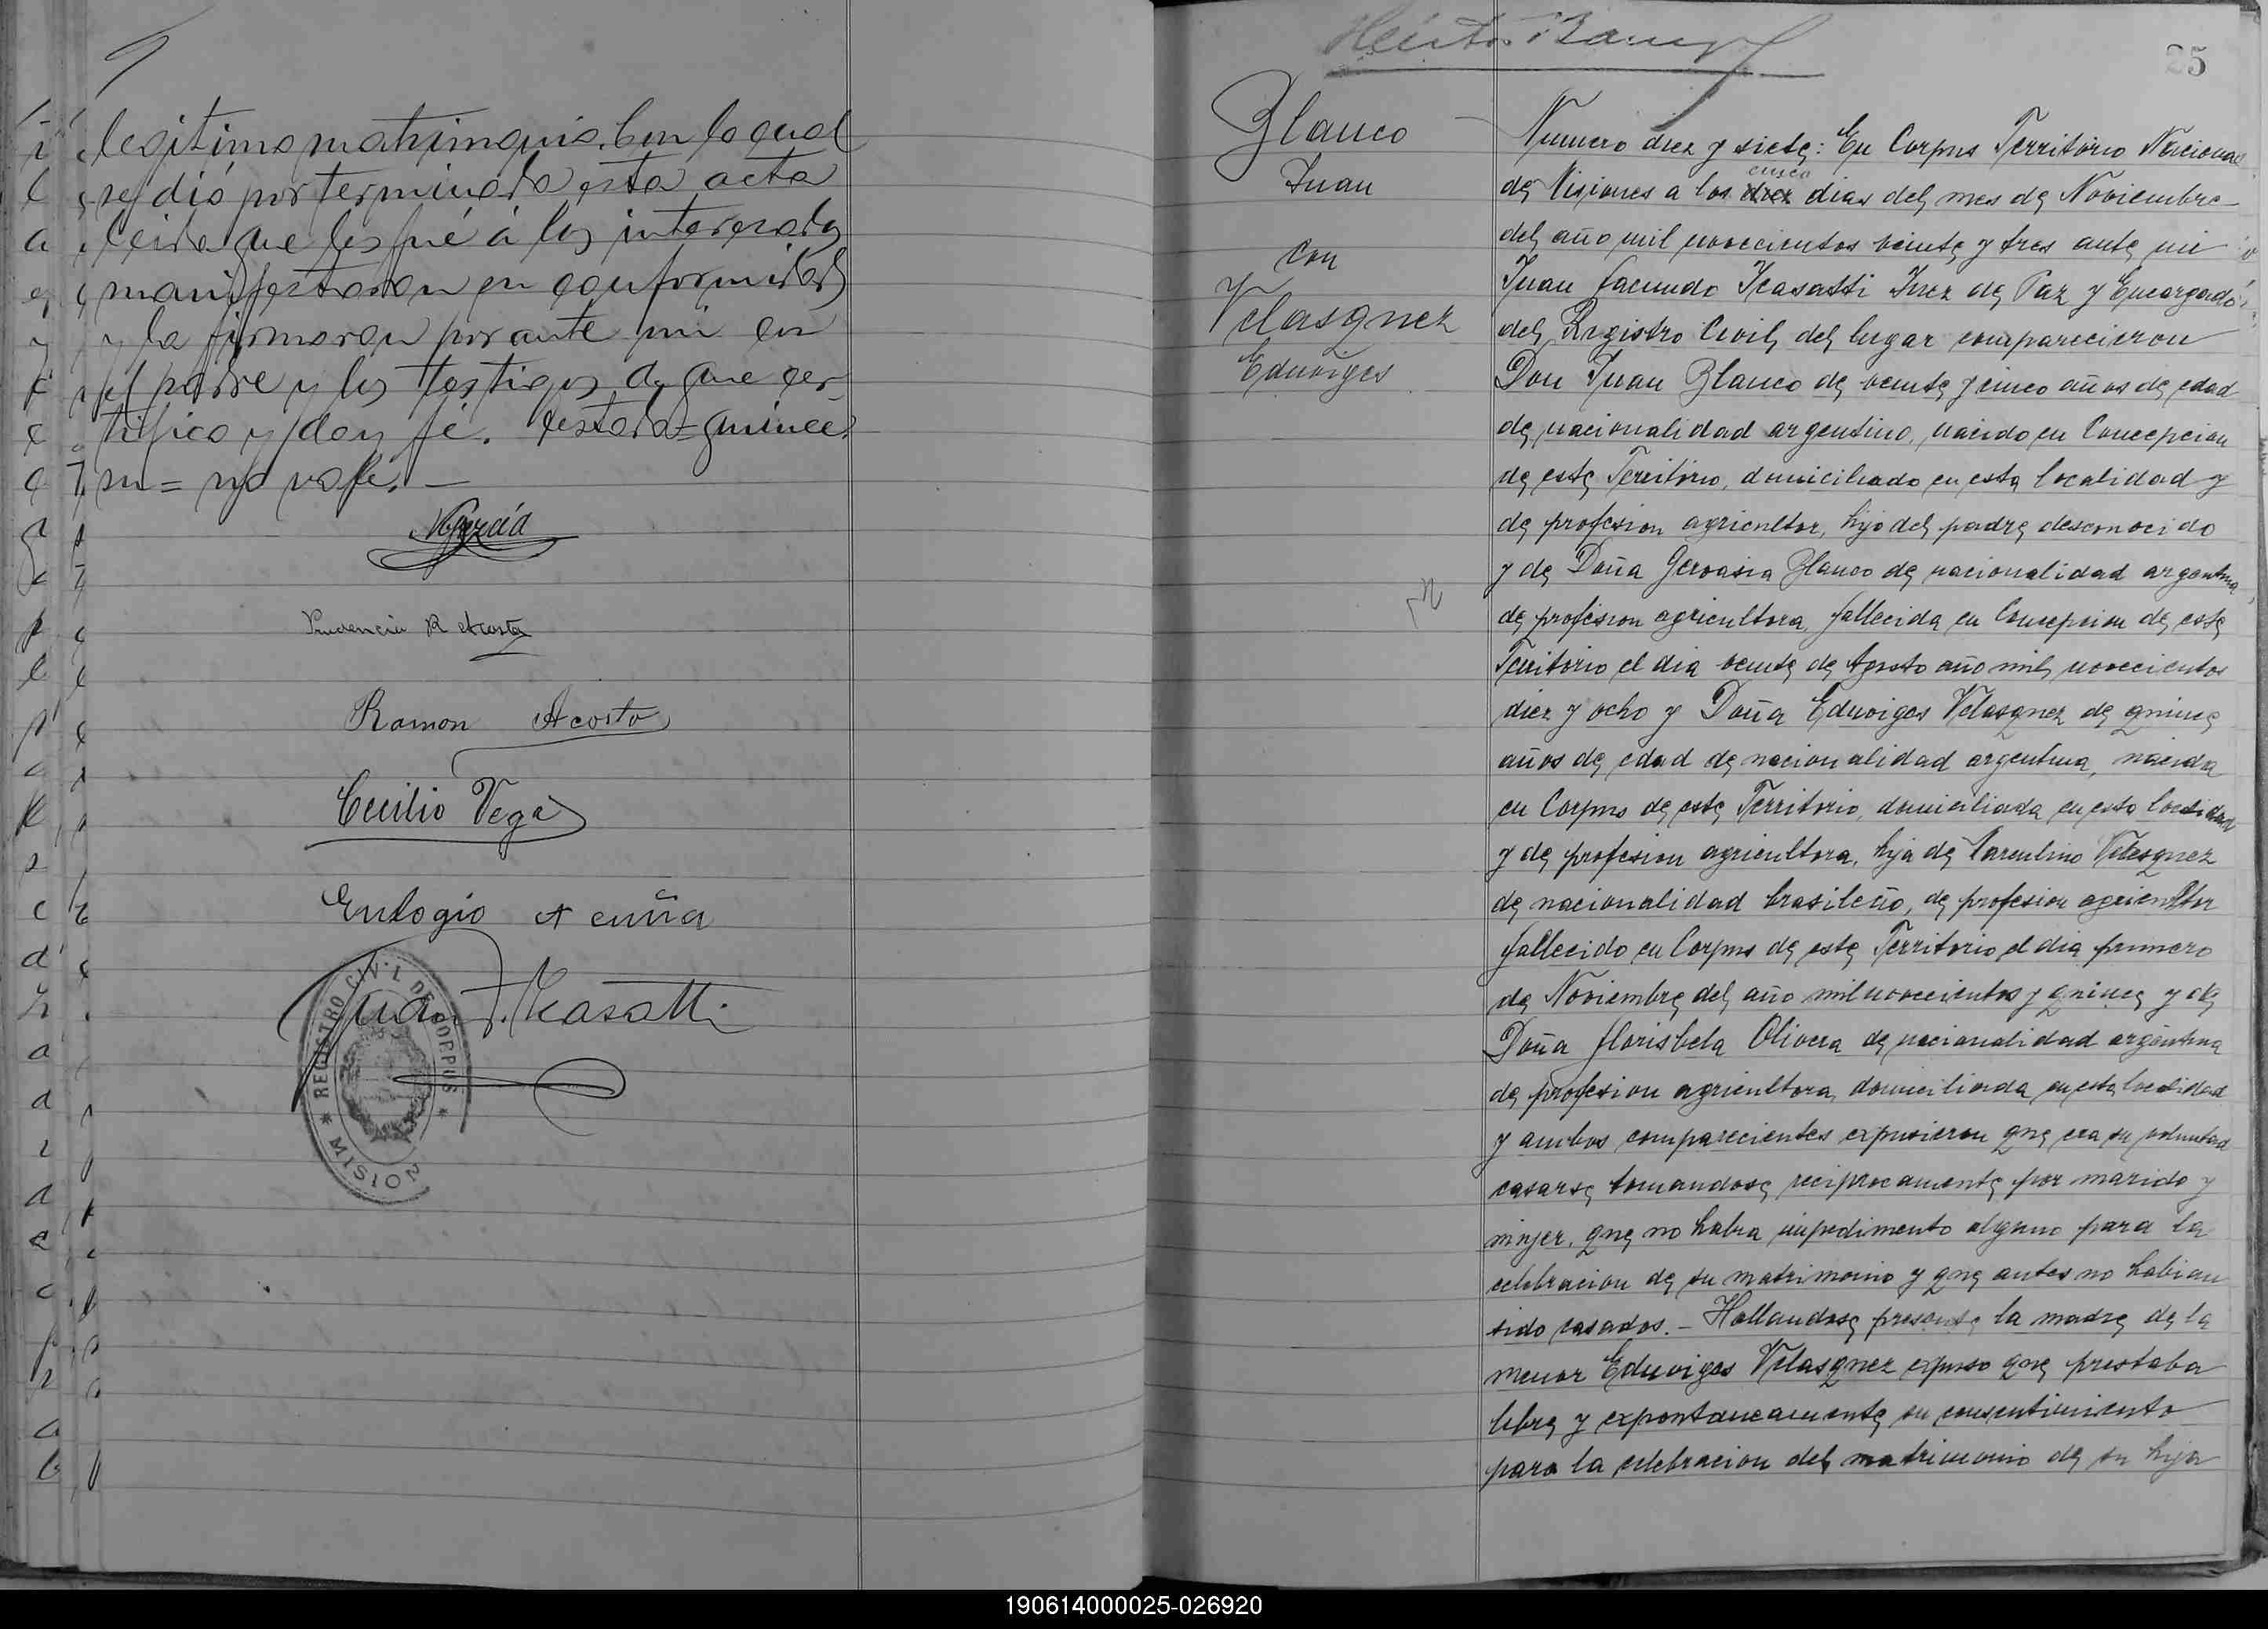 legitimo matrimonio. Con lo cual
se dió por terminada esta acta
leida que les fué á los interesados
manifestaron su conformidad
y la firmaron por ante mi con
el padre y los testigos de que cer-
tifico y doy fé. testado = quince
m = no vale. —
NGarcía
Prudencia R Acosta
Ramon Acosta
Cecilio Vega
Eulogio Acuña
Juan F. Icasatti
* REGISTRO CIVIL DE CORPUS *
MISION
25
Blanco
Juan
con
Velasquez
Eduviges
Numero diez y siete: En Corpus Territorio Nacional
cinco
de Misiones a los diez dias del mes de Noviembre
del año mil novecientos veinte y tres ante mi
Juan Facundo Icasatti Juez de Paz y Encargado
del Registro Civil del lugar comparecieron
Don Juan Blanco de veinte y cinco años de edad
de nacionalidad argentino, nacido en Concepcion
de este Territorio, domiciliado en esta localidad y
de profesion agricultor, hijo del padre desconocido
y de Doña Gervasia Blanco de nacionalidad argentina,
de profesion agricultora, fallecida en Concepcion de este
Territorio el dia veinte de Agosto año mil novecientos
diez y ocho y Doña Eduviges Velasquez de quince
años de edad de nacionalidad argentina, nacida
en Corpus de este Territorio, domiciliada en esta localidad
y de profesion agricultora, hija de Velasquez
de nacionalidad brasileño, de profesion agricultor
fallecido en Corpus de este Territorio el dia primero
de Noviembre del año mil novecientos y quince y de
Doña Florisbela Olivera de nacionalidad argentina
de profesion agricultora, domiciliada en esta localidad
y ambos comparecientes expusieron que era su voluntad
casarse tomandose reciprocamente por marido y
mujer, que no habia impedimento alguno para la
celebracion de su matrimonio y que antes no habian
sido casados. - Hallandose presente la madre de la
menor Eduviges Velasquez expuso que prestaba
libre y expontaneamente su consentimiento
para la celebracion del matrimonio de su hija
190614000025-026920